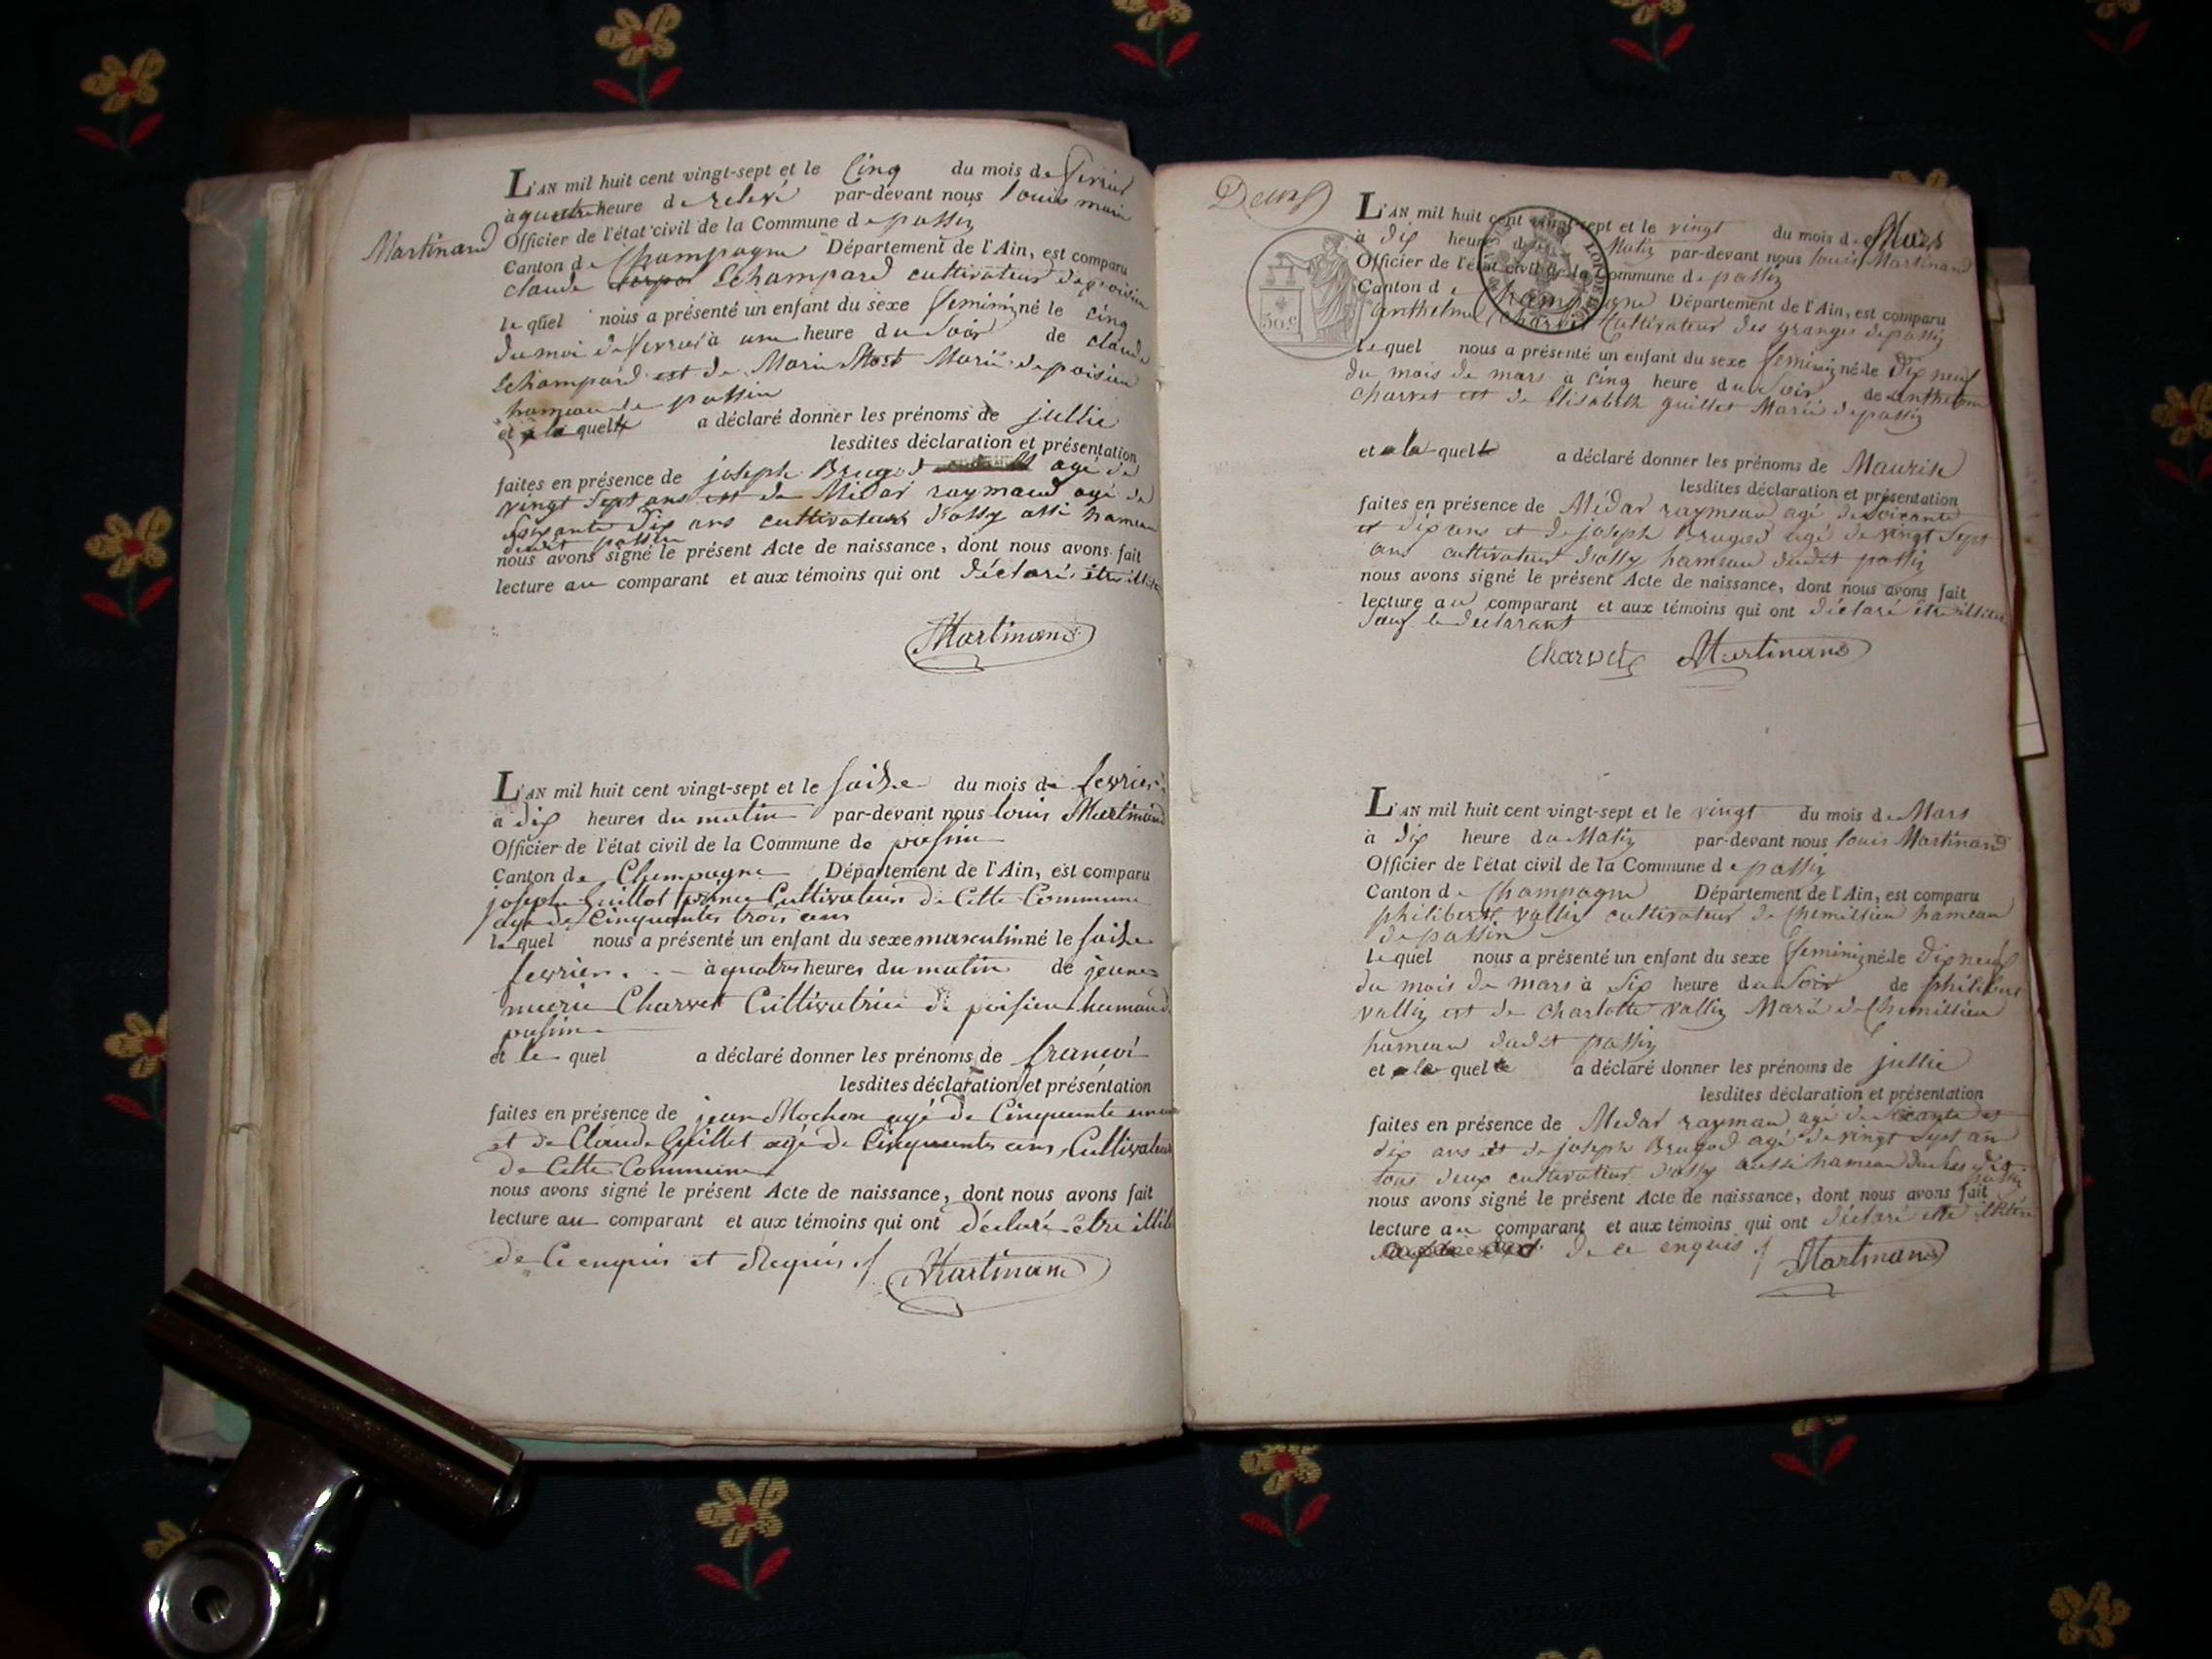 L'AN mil huit cent vingt-sept et le Cinq du mois de fevrier
à quatre heure de relevé par-devant nous louis maire
Martinand
Officier de l'état civil de la Commune de passin
Canton de Champagne Département de l'Ain, est comparu
claude Lchampard cultivateur de poisieu
le quel nous a présenté un enfant du sexe feminin né le cinq
du moi de fevrier à une heure du Soir de claude
Lchampard et de Marie Mariés de poisieu
hameau de passin
et a la quelle a déclaré donner les prénoms de jullie
lesdites déclaration et présentation
faites en présence de joseph Brugod agé de
vingt Sept ans et de Médar raymand agé de
Soixante Dix ans cultivateurs d'ossy hameau
dudit passin
nous avons signé le présent Acte de naissance, dont nous avons fait
lecture au comparant et aux témoins qui ont déclaré être
Martinand
L'AN mil huit cent vingt-sept et le saise du mois de fevrier
à dix heures du matin par-devant nous louis Martinand
Officier de l'état civil de la Commune de passin
Canton de Champagne Département de l'Ain, est comparu
joseph Guillot Cultivateur de Cette Commune
agé de Cinquante trois ans
le quel nous a présenté un enfant du sexe masculin né le saise
fevrier à quatre heures du matin de jeanne
marie Charvet Cultivatrice de poisieu hamaud
passin
et le quel a déclaré donner les prénoms de françoi
lesdites déclaration et présentation
faites en présence de jean Mochon agé de Cinquante
et de Claude Guillet agé de Cinquante ans, Cultivateur
de Cette Commune
nous avons signé le présent Acte de naissance, dont nous avons fait
lecture au comparant et aux témoins qui ont déclaré être
de Ce enquis et Requis ./ Martinand
Deux
L'AN mil huit cent vingt-sept et le vingt du mois de Mars
à dix heure du Matin par-devant nous louis Martinand
Officier de l'état civil de la Commune de passin
Canton de Champagne Département de l'Ain, est comparu
anthelme Charvet Cultivateur des granges de passin
50 c
le quel nous a présenté un enfant du sexe feminin né le dix neuf
du mois de mars à cinq heure du Soir de anthelme
charvet et de Elisabeth guillet Mariés de passin
et a la quelle a déclaré donner les prénoms de Maurise
lesdites déclaration et présentation
faites en présence de Médar raymand agé de Soixante
et dix ans et de joseph Brugod agé de vingt Sept
ans cultivateur d'ossy hameau dudit passin
nous avons signé le présent Acte de naissance, dont nous avons fait
lecture au comparant et aux témoins qui ont déclaré être
Sauf le declarant
Charvet Martinand
L'AN mil huit cent vingt-sept et le vingt du mois de Mars
à dix heure du Matin par-devant nous louis Martinand
Officier de l'état civil de la Commune de passin
Canton de Champagne Département de l'Ain, est comparu
philibert vallin cultivateur de Chemillieu hameau
de passin
le quel nous a présenté un enfant du sexe feminin né le dix neuf
du mois de mars à Six heure du Soir de philibert
vallin et de Charlotte vallin Marié de Chemillieu
hameau dudit passin
et a la quelle a déclaré donner les prénoms de jullie
lesdites déclaration et présentation
faites en présence de Medar rayman agé de et
dix ans et de joseph Brugod agé de vingt Sept an
tous deux cultivateur d'ossy aussi hameau
passin
nous avons signé le présent Acte de naissance, dont nous avons fait
lecture au comparant et aux témoins qui ont déclaré être
de ce enquis ./ Martinand